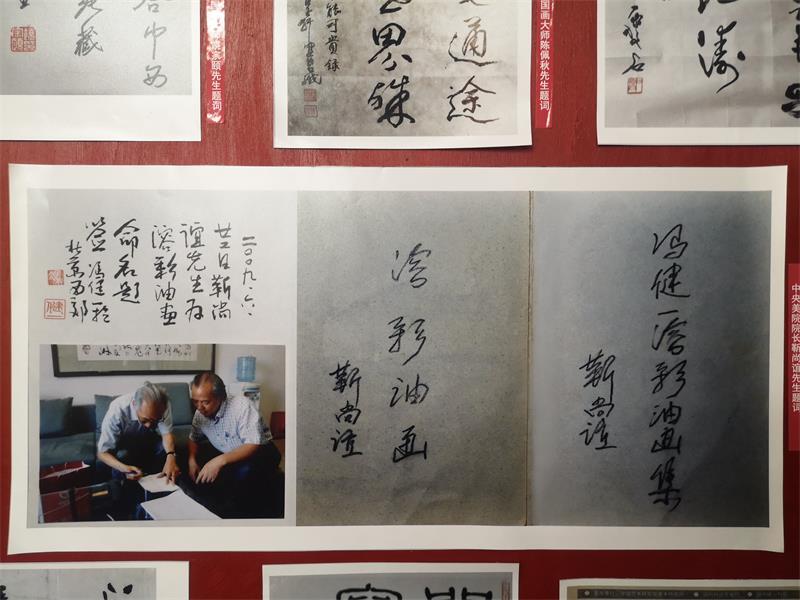 中西
藏
宗颐先生题词
通途
界殊
能可贵录
国画大师陈佩秋先生题词
涛
二〇〇九·六·
廿二日靳尚
谊先生为
溶彩油画
命名题
签冯健一
北京西郊
溶彩油画
靳尚谊
冯健一溶彩油画集
靳尚谊
中央美院院长靳尚谊先生题词